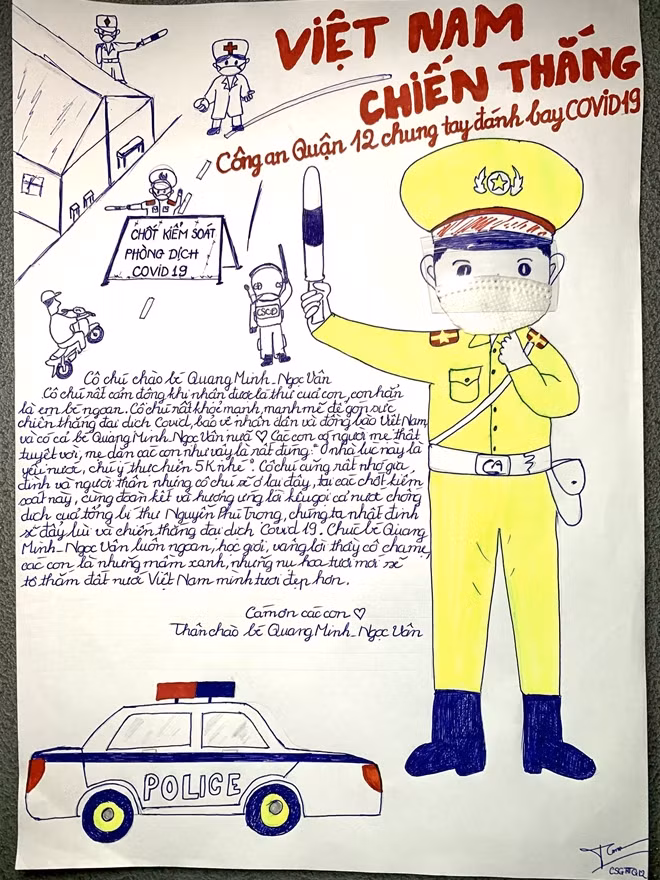 VIỆT NAM
CHIẾN THẮNG
Công an Quận 12 chung tay đánh bay COVID19
CHỐT KIỂM SOÁT
PHÒNG DỊCH
COVID 19
CSCĐ
Cô chú chào bé Quang Minh_Ngọc Vân
Cô chú rất cảm động khi nhận được lá thư của con, con hẳn
là em bé ngoan. Cô chú rất khỏe mạnh, mạnh mẽ để góp sức
chiến thắng đại dịch Covid, bảo vệ nhân dân và đồng bào Việt Nam
và có cả bé Quang Minh_Ngọc Vân nữa ♡ Các con có người mẹ thật
tuyệt vời, mẹ dặn các con như vậy là rất đúng: "Ở nhà lúc này là
yêu nước, chú ý thực hiện 5K nhé". Cô chú cũng rất nhớ gia
đình và người thân nhưng cô chú sẽ ở lại đây, tại các chốt kiểm
soát này, cùng đoàn kết và hưởng ứng lời kêu gọi cả nước chống
dịch của tổng bí thư Nguyễn Phú Trọng, chúng ta nhất định
sẽ đẩy lùi và chiến thắng đại dịch Covid 19. Chúc bé Quang
Minh_Ngọc Vân luôn ngoan, học giỏi, vâng lời thầy cô cha mẹ,
các con là những mầm xanh, những nụ hoa tươi mới sẽ
tô thắm đất nước Việt Nam mình tươi đẹp hơn.
Cảm ơn các con ♡
Thân chào bé Quang Minh_Ngọc Vân
CA
POLICE